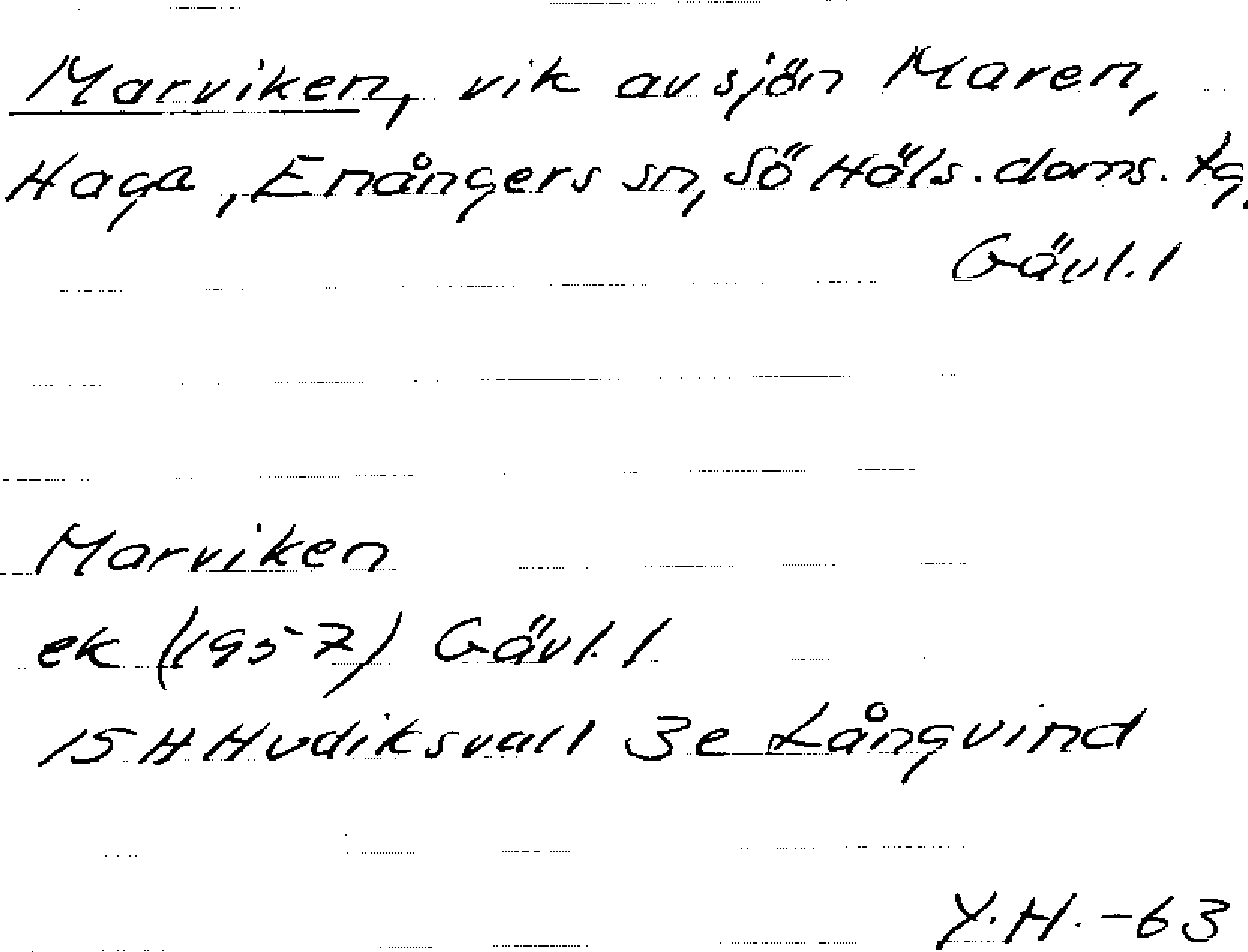 Marviken, vik av sjön Maren,
Haga, Enångers sn, Sö Häls. doms. tg,
Gävl. l
Marviken
ek (1957) Gävl. l
15 H Hudiksvall 3e Långvind
Y.H. -63